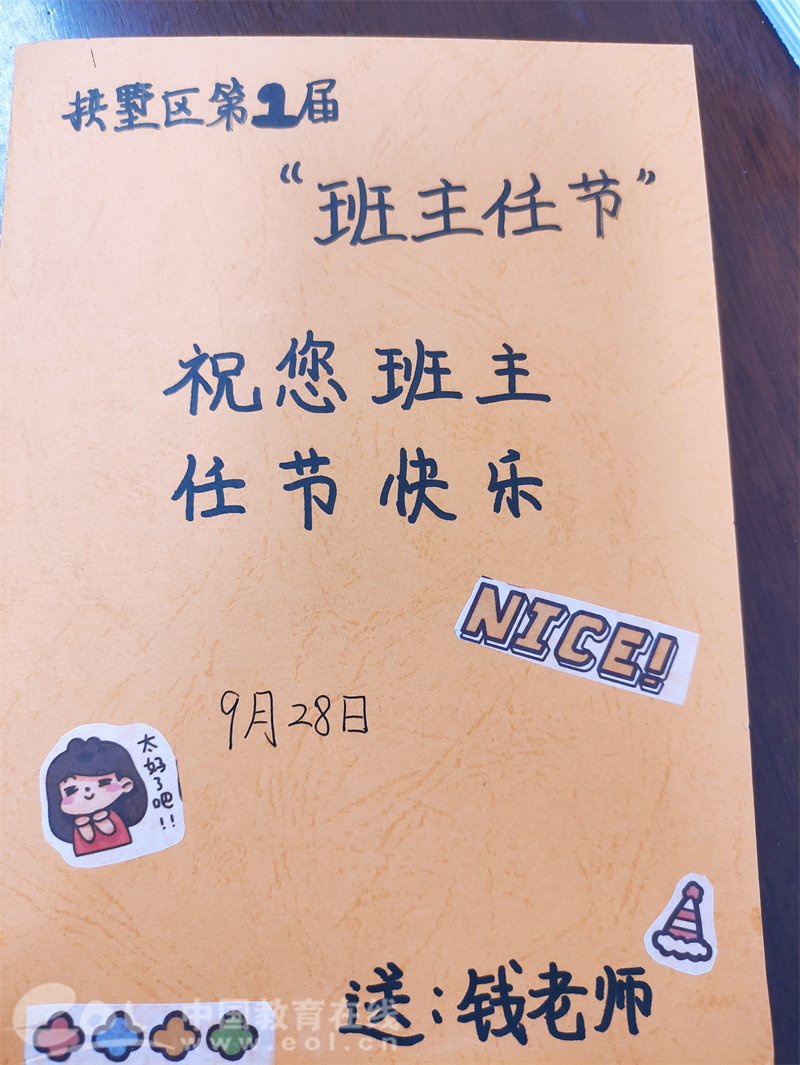 拱墅区第1届
“班主任节”
祝您班主
任节快乐
NICE!
9月28日
太好了吧!!
送:钱老师
中国教育在线
www.eol.cn